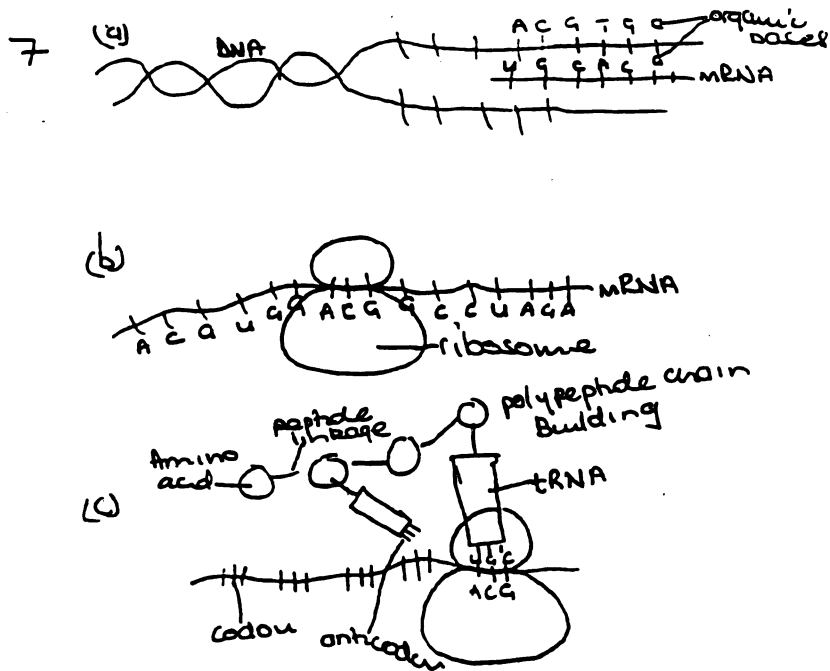 7 (a)
DNA
A C G T G G
organic
bases
U G C A C
mRNA
(b)
mRNA
A C G U G G A C G G C C U A G A
ribosome
polypeptide chain
Building
peptide
linkage
Amino
acid
tRNA
(c)
U G C
A C G
codon
anticodon